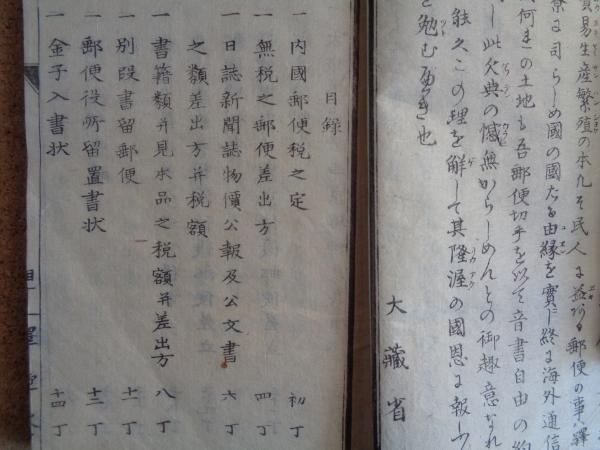 貿易生産繁殖の本凡そ民人に益ある郵便の事ハ驛
寮に司らしめ國の國たる由縁を實し終に海外通信
何まの土地も吾郵便切手を以て音書自由の
し此欠典の憾無からしめんとの御趣意なれ
能久この理を解して其隆渥の國恩に報し
を勉む屁き也
大藏省
目録
一 内國郵便税之定 初丁
一 無税之郵便差出方 四丁
一 日誌新聞誌物價公報及公文書
之類差出方幷税額 六丁
一 書籍類幷見本品之税額幷差出方 八丁
一 別段書留郵便 十一丁
一 郵便役所留置書状 十二丁
一 金子入書状 十四丁